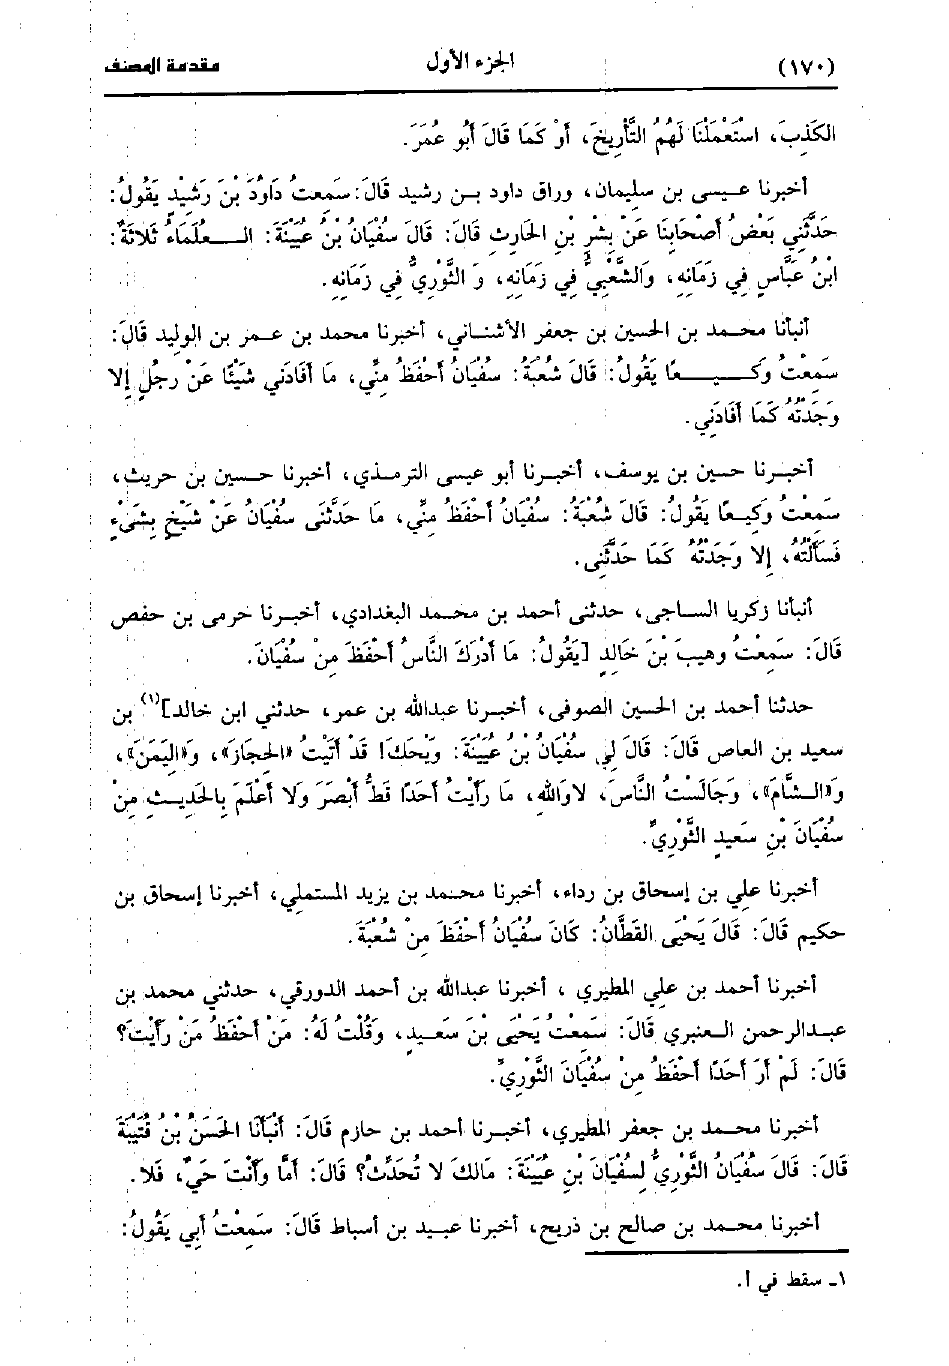 (١٧٠) الجزء الأول مقدمة المصنف
الكَذِبَ، اسْتَعْمَلْنَا لَهُمُ التَّأْرِيخَ، أَوْ كَمَا قَالَ أَبُو عُمَرَ.
أخبرنا عيسى بن سليمان، وراق داود بن رشيد قَالَ: سَمِعتُ دَاوُدَ بْنَ رَشَيْدٍ يَقُولُ:
حَدَّثَنِي بَعْضُ أَصْحَابِنَا عَنْ بِشْرِ بْنِ الحَارِثِ قَالَ: قَالَ سُفْيَانُ بْنُ عُيَيْنَةَ: العُلَمَاءُ ثَلاثَةٌ:
ابْنُ عَبَّاسٍ فِي زَمَانِهِ، وَالشَّعْبِيُّ فِي زَمَانِهِ، وَ الثَّوْرِيُّ فِي زَمَانِهِ.
أنبأنا محمد بن الحسين بن جعفر الأشناني، أخبرنا محمد بن عمر بن الوليد قَالَ:
سَمِعْتُ وَكَيعًا يَقُولُ: قَالَ شُعْبَةُ: سُفْيَانُ أَحْفَظُ مِنِّي، مَا أَفَادَنِي شَيْئًا عَنْ رَجُلٍ إِلا
وَجَدْتُهُ كَمَا أَفَادَنِي.
أخبرنا حسين بن يوسف، أخبرنا أبو عيسى الترمذي، أخبرنا حسين بن حريث،
سَمِعْتُ وَكِيعًا يَقُولُ: قَالَ شُعْبَةُ: سُفْيَانُ أَحْفَظُ مِنِّي، مَا حَدَّثَنَى سُفْيَانُ عَنْ شَيْخٍ بِشَىْءٍ
فَسَأَلْتُهُ، إِلا وَجَدْتُهُ كَمَا حَدَّثَنِى.
أنبأنا زكريا الساجى، حدثنى أحمد بن محمد البغدادي، أخبرنا حرمى بن حفص
قَالَ: سَمِعْتُ وهيبَ بْنَ خَالِدٍ [يَقُولُ: مَا أَدْرَكَ النَّاسُ أَحْفَظَ مِنْ سُفْيَانَ.
حدثنا أحمد بن الحسين الصوفى، أخبرنا عبدالله بن عمر، حدثني ابن خالد](١) بن
سعيد بن العاص قَالَ: قَالَ لِي سُفْيَانُ بْنُ عُيَيْنَةَ: وَيْحَكَ! قَدْ أَتَيْتُ «الحِجَازَ»، وَ«اليَمَنَ»،
وَ«الشَّامَ»، وَجَالَسْتُ النَّاسَ، لاوَاللهِ، مَا رَأَيْتُ أَحَدًا قَطُّ أَبْصَرَ وَلا أَعْلَمَ بِالحَدِيثِ مِنْ
سُفْيَانَ بْنِ سَعِيدٍ الثَّوْرِيِّ.
أخبرنا علي بن إسحاق بن رداء، أخبرنا محمد بن يزيد المستملي، أخبرنا إسحاق بن
حكيم قَالَ: قَالَ يَحْيَى القَطَّانُ: كَانَ سُفْيَانُ أَحْفَظَ مِنْ شُعْبَةَ.
أخبرنا أحمد بن علي المطيري ، أخبرنا عبدالله بن أحمد الدورقي، حدثني محمد بن
عبدالرحمن العنبري قَالَ: سَمِعْتُ يَحْيَى بْنَ سَعِيدٍ، وَقُلْتُ لَهُ: مَنْ أَحْفَظُ مَنْ رَأَيْتَ؟
قَالَ: لَمْ أَرَ أَحَدًا أَحْفَظُ مِنْ سُفْيَانَ الثَّوْرِيِّ.
أخبرنا محمد بن جعفر المطيري، أخبرنا أحمد بن حازم قَالَ: أَنْبَأَنَا الحَسَنُ بْنُ قُتَيْبَةَ
قَالَ: قَالَ سُفْيَانُ الثَّوْرِيُّ لِسُفْيَانَ بْنِ عُيَيْنَةَ: مَالكَ لا تُحَدِّثُ؟ قَالَ: أَمَّا وَأَنْتَ حَيٌّ، فَلا.
أخبرنا محمد بن صالح بن ذريح، أخبرنا عبيد بن أسباط قَالَ: سَمِعْتُ أَبِي يَقُولُ:
١ـ سقط في أ.